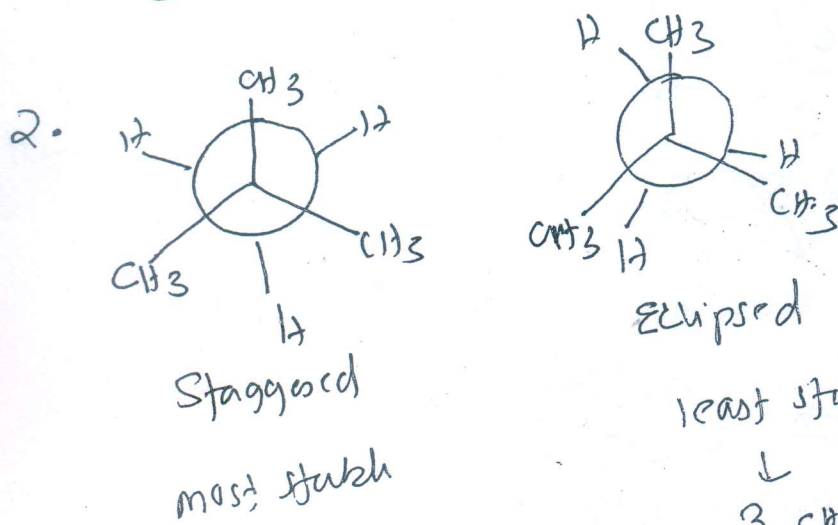 2.
CH3
H
H
CH3
CH3
H
Staggered
most stable
H
CH3
H
CH3
CH3
H
Eclipsed
least sta
↓
3 CH